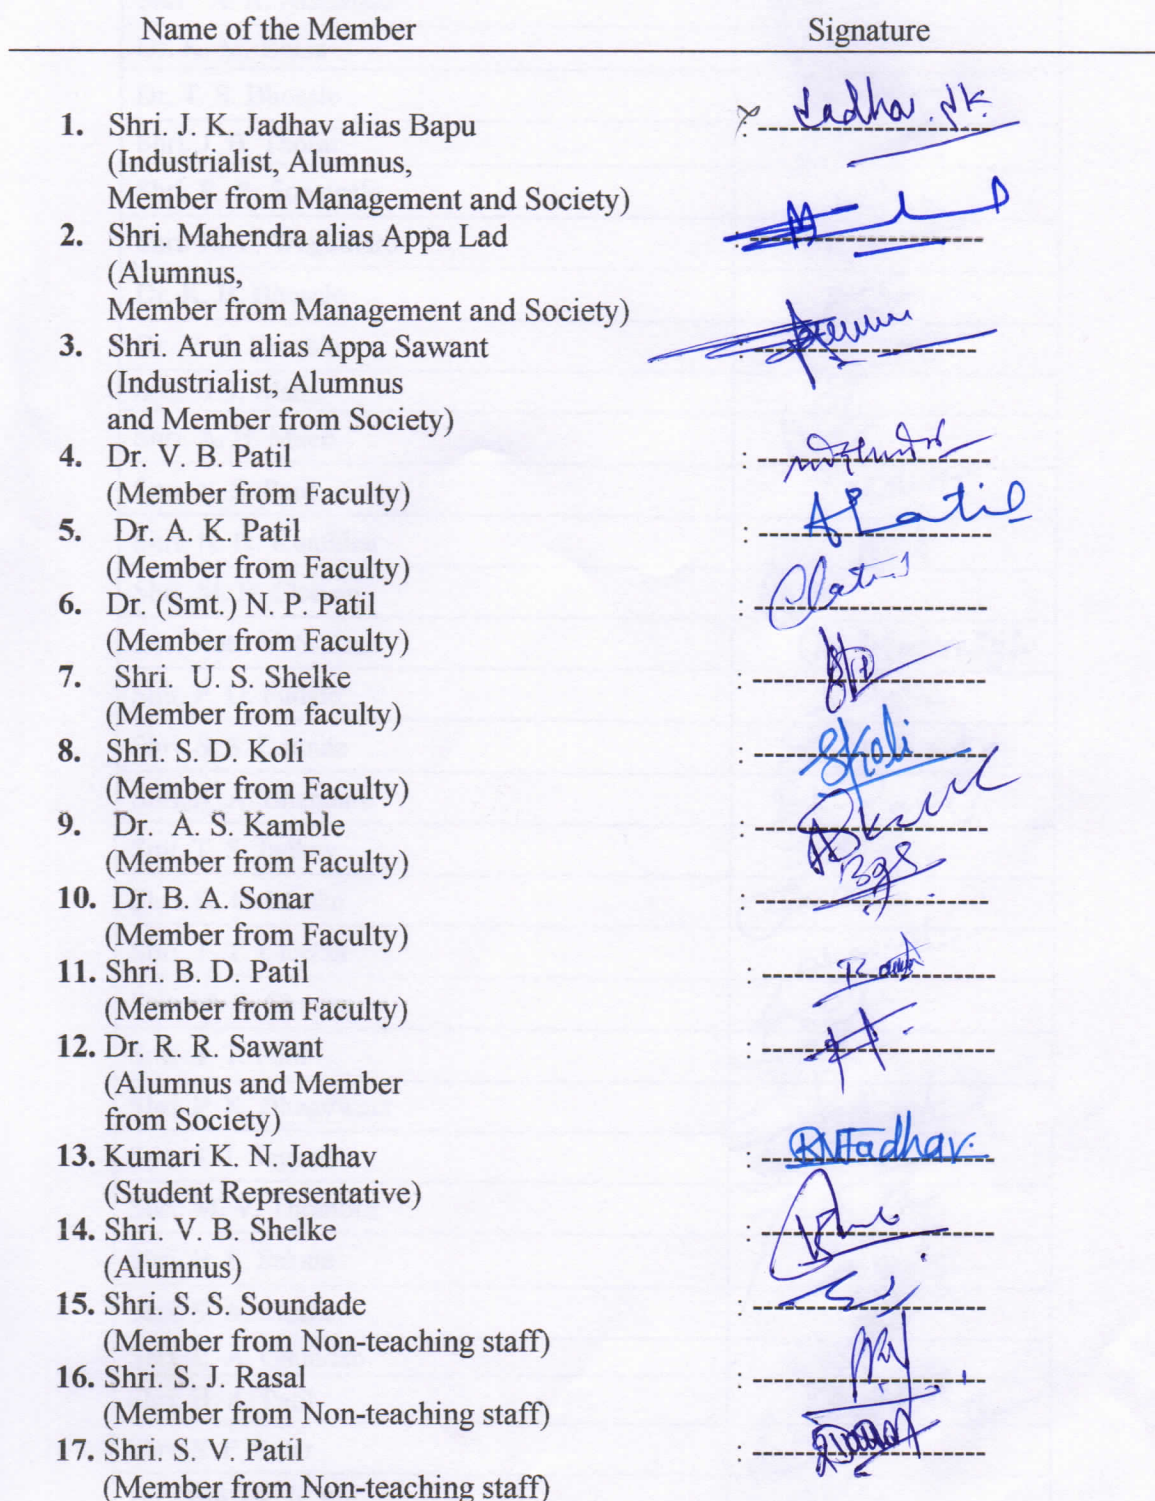 Name of the Member Signature
1. Shri. J. K. Jadhav alias Bapu : Jadhav. JK.
(Industrialist, Alumnus,
Member from Management and Society)
2. Shri. Mahendra alias Appa Lad :
(Alumnus,
Member from Management and Society)
3. Shri. Arun alias Appa Sawant :
(Industrialist, Alumnus
and Member from Society)
4. Dr. V. B. Patil :
(Member from Faculty)
5. Dr. A. K. Patil : APatil
(Member from Faculty)
6. Dr. (Smt.) N. P. Patil :
(Member from Faculty)
7. Shri. U. S. Shelke :
(Member from faculty)
8. Shri. S. D. Koli : SKoli
(Member from Faculty)
9. Dr. A. S. Kamble :
(Member from Faculty)
10. Dr. B. A. Sonar :
(Member from Faculty)
11. Shri. B. D. Patil :
(Member from Faculty)
12. Dr. R. R. Sawant :
(Alumnus and Member
from Society)
13. Kumari K. N. Jadhav : KNJadhav.
(Student Representative)
14. Shri. V. B. Shelke :
(Alumnus)
15. Shri. S. S. Soundade :
(Member from Non-teaching staff)
16. Shri. S. J. Rasal :
(Member from Non-teaching staff)
17. Shri. S. V. Patil :
(Member from Non-teaching staff)